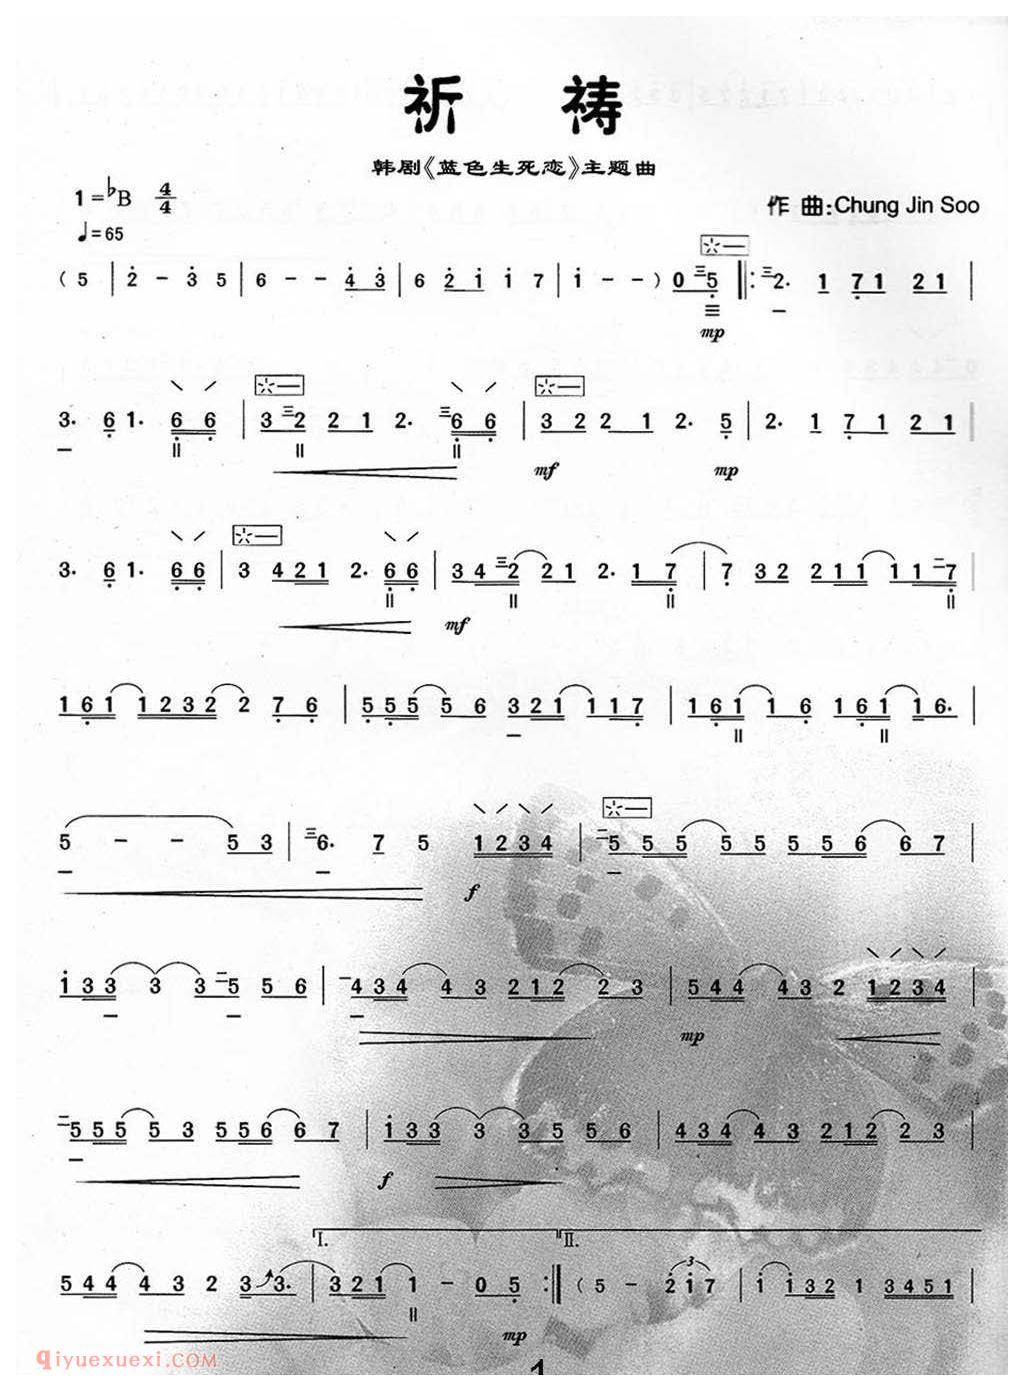 祈 祷
韩剧《蓝色生死恋》主题曲
1=♭B 4/4
♩=65
作 曲:Chung Jin Soo
( 5 | 2̇ - 3̇ 5 | 6 - - 4̇ 3̇ | 6 2̇ 1̇ 1̇ 7 | 1̇ - - ) 0 5 ‖: 2. 1 7 1 2 1 |
mp
3. 6 1. 6 6 | 3 2 2 1 2. 6 6 | 3 2 2 1 2. 5 | 2. 1 7 1 2 1 |
mf mp
3. 6 1. 6 6 | 3 4 2 1 2. 6 6 | 3 4 2 2 1 2. 1 7 | 7 3 2 2 1 1 1 1 7 |
mf
1 6 1 1 2 3 2 2 7 6 | 5 5 5 5 6 3 2 1 1 1 7 | 1 6 1 1 6 1 6 1 1 6. |
5 - - 5 3 | 6. 7 5 1 2 3 4 | 5 5 5 5 5 5 5 6 6 7 |
f
1̇ 3 3 3 3 5 5 6 | 4 3 4 4 3 2 1 2 2 3 | 5 4 4 4 3 2 1 2 3 4 |
mp
5 5 5 5 3 5 5 6 6 7 | 1̇ 3 3 3 3 5 5 6 | 4 3 4 4 3 2 1 2 2 3 |
f
I. II.
5 4 4 4 3 2 3 3. | 3 2 1 1 - 0 5 :‖ ( 5 - 2̇ 1̇ 7 | 1̇ 1̇ 3 2 1 3 4 5 1 |
3
mp
qiyuexuexi.COM
1